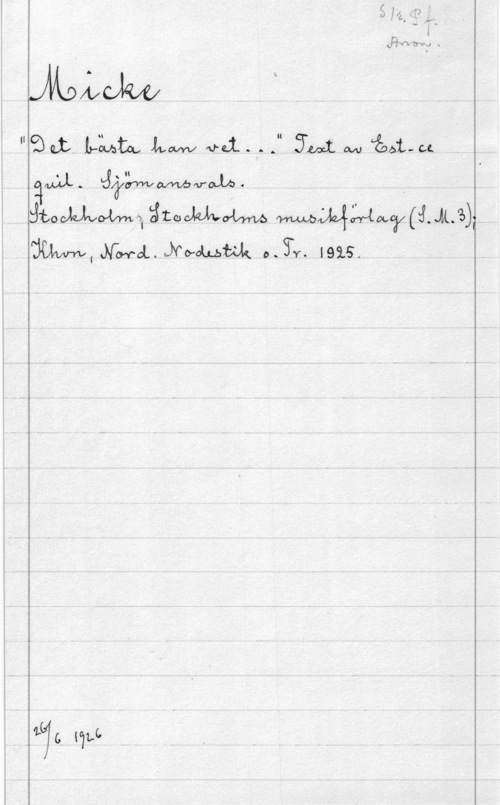 S/e. Pf.
Anon.
Micke
"Det bästa han vet..." Text av Est-ce
quil. Sjömansvals.
Stockholm, Stockholms musikförlag (S.M.3);
Khvn, Nord. Nodestik o. Tr. 1925.
26/6 1926